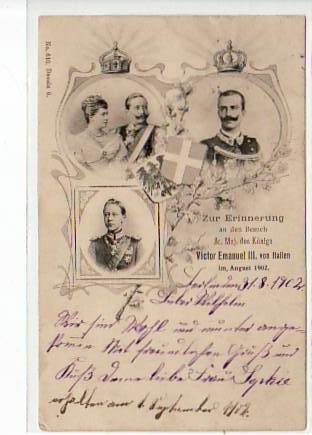 No. 440, Dessin 6.
Zur Erinnerung
an den Besuch
Sr. Maj. des Königs
Victor Emanuel III. von Italien
im August 1902.
31.8.1902
Lieber Wilhelm
Wir sind Wohl und munter ange-
Mit freundlichen Gruß und
Kuß Deine liebe Frau Sophie
erhalten am 1 September 1902